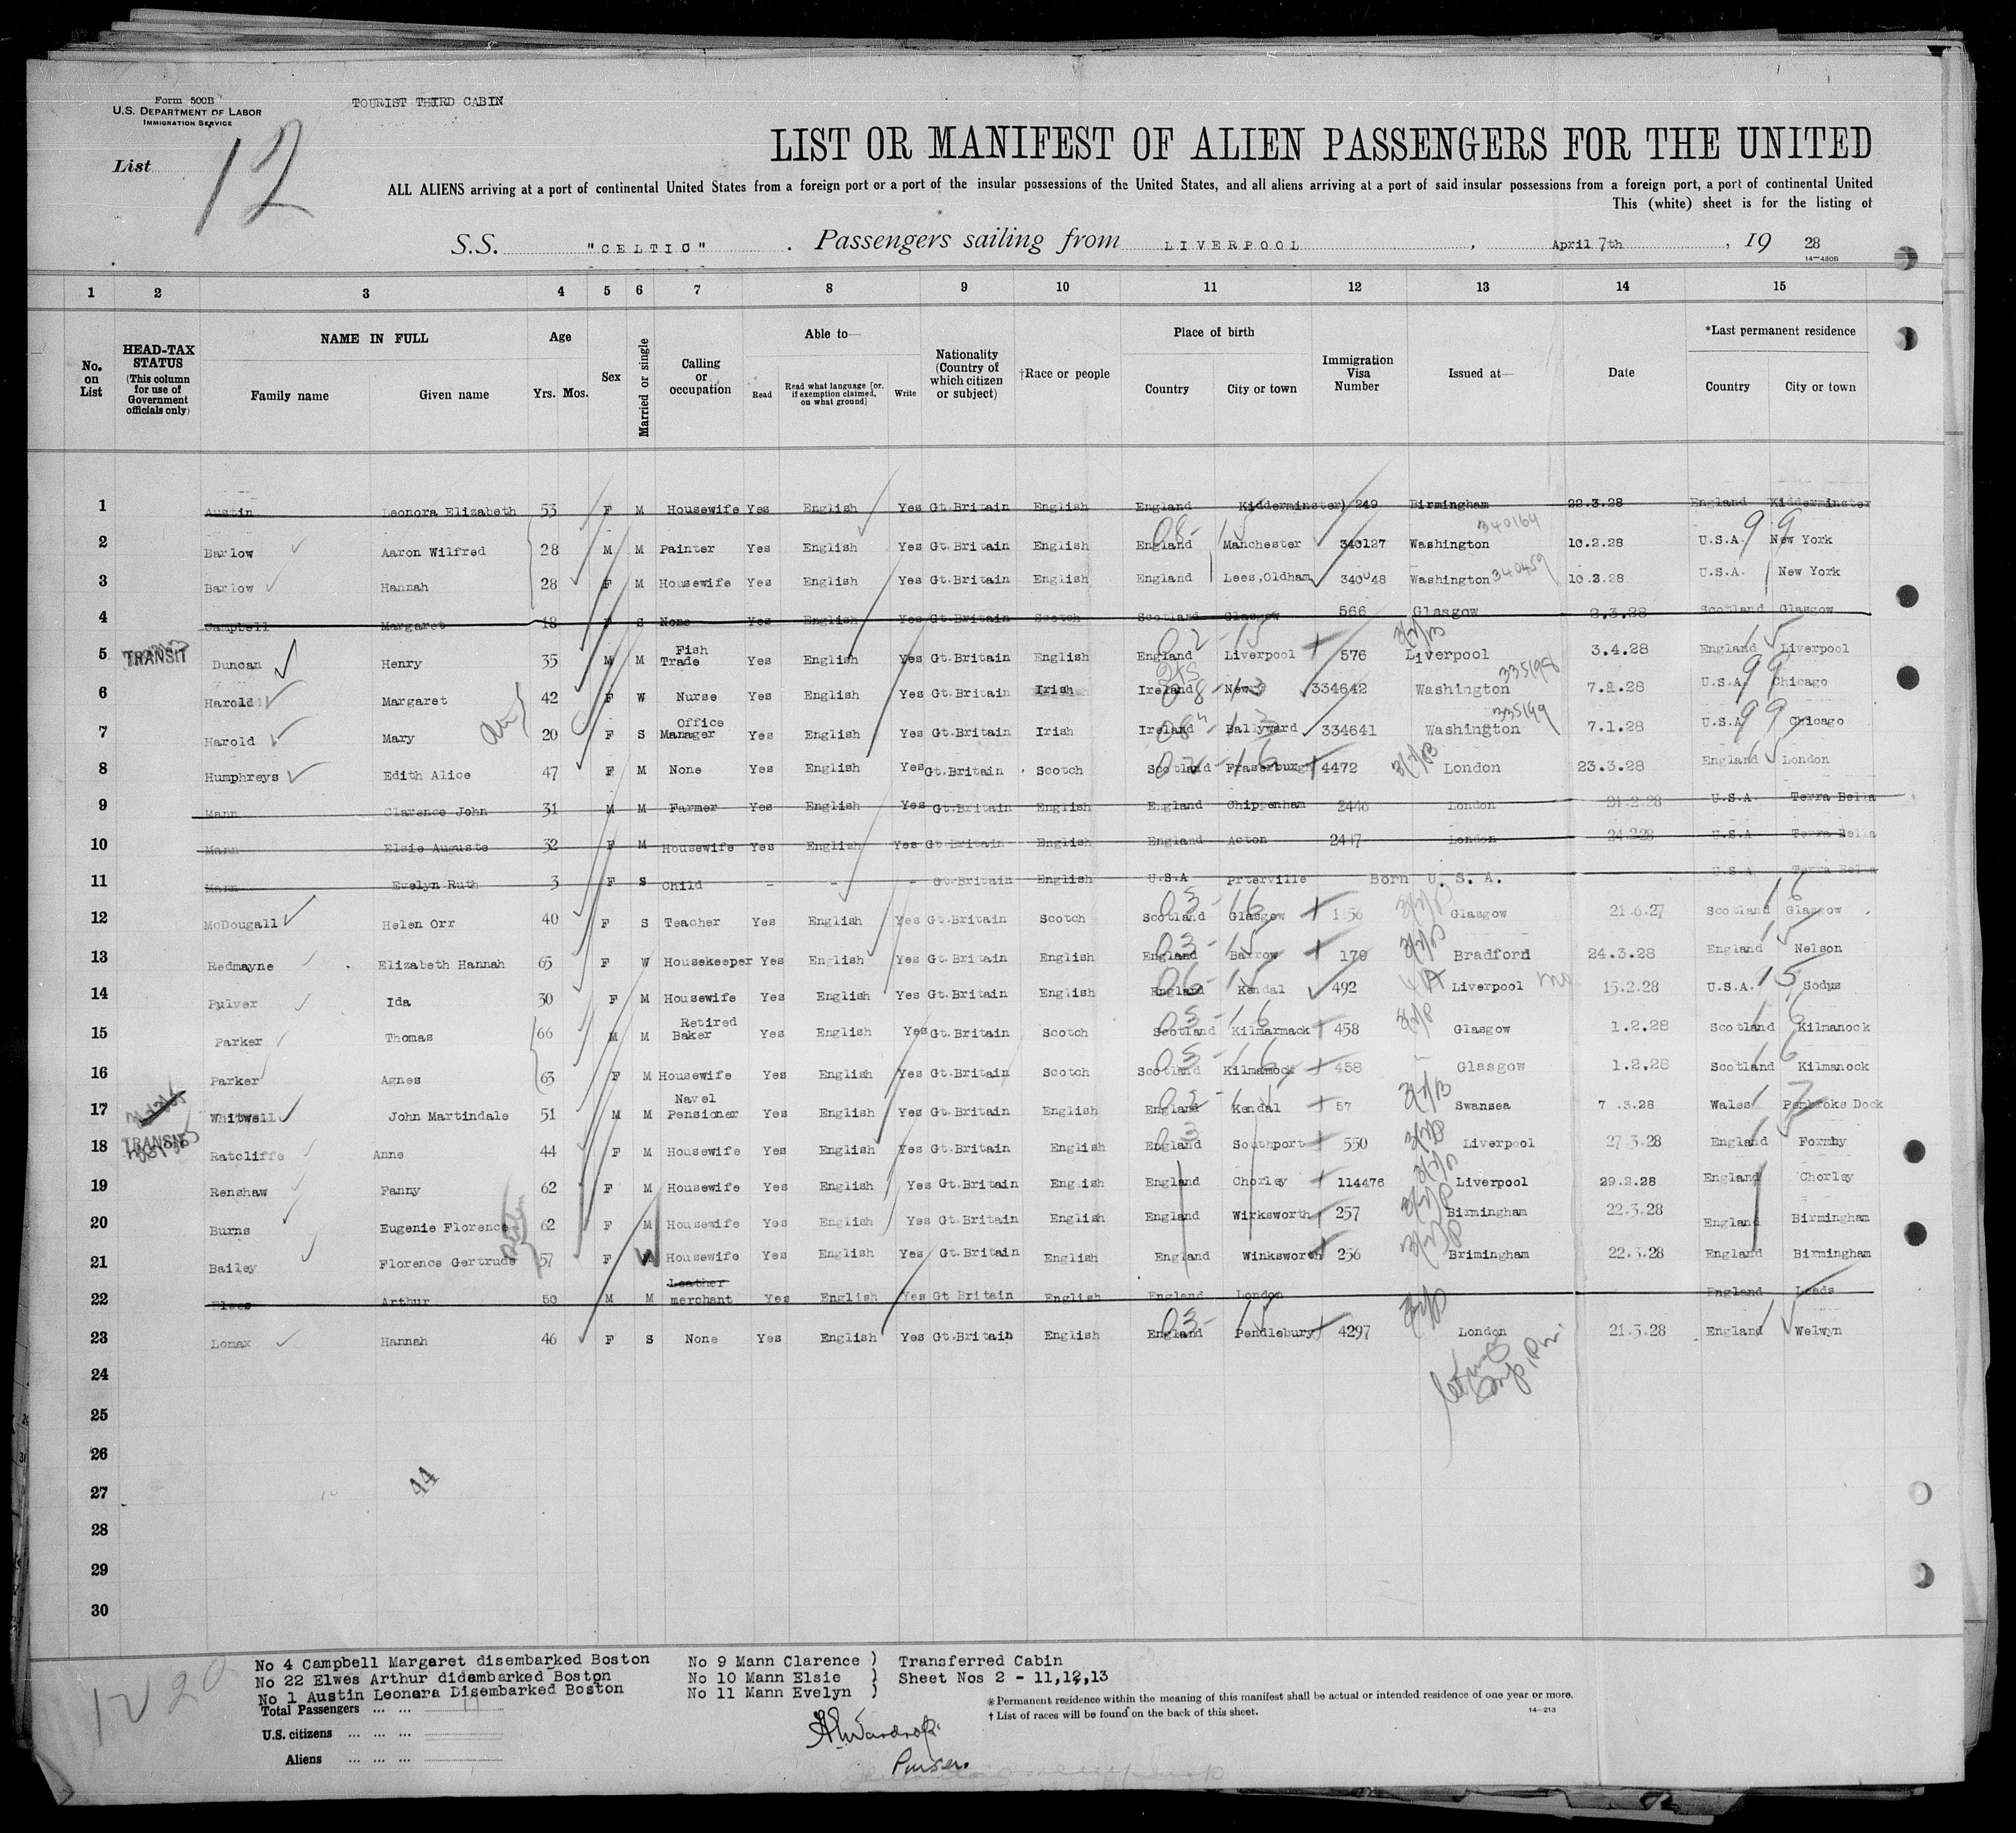 Form 500B
U.S. DEPARTMENT OF LABOR
IMMIGRATION SERVICE
TOURIST THIRD CABIN
List 12
LIST OR MANIFEST OF ALIEN PASSENGERS FOR THE UNITED
ALL ALIENS arriving at a port of continental United States from a foreign port or a port of the insular possessions of the United States, and all aliens arriving at a port of said insular possessions from a foreign port, a port of continental United
This (white) sheet is for the listing of
S.S. "CELTIC" . Passengers sailing from LIVERPOOL , April 7th , 19 28
14-430B
1 2 3 4 5 6 7 8 9 10 11 12 13 14 15
No. on List
HEAD-TAX STATUS (This column for use of Government officials only)
NAME IN FULL
Family name Given name
Age
Yrs. Mos.
Sex
Married or single
Calling or occupation
Able to—
Read Read what language [or, if exemption claimed, on what ground] Write
Nationality (Country of which citizen or subject)
†Race or people
Place of birth
Country City or town
Immigration Visa Number
Issued at—
Date
*Last permanent residence
Country City or town
1 Austin Leonora Elizabeth 53 F M Housewife Yes English Yes Gt.Britain English England Kidderminster) 249 Birmingham 22.3.28 England Kidderminster
2 Barlow Aaron Wilfred 28 M M Painter Yes English Yes Gt.Britain English England Manchester 340127 Washington 340164 10.2.28 U.S.A. New York
3 Barlow Hannah 28 F M Housewife Yes English Yes Gt.Britain English England Lees,Oldham 340048 Washington 340459 10.2.28 U.S.A. New York
4 Campbell Margaret 18 F S None Yes English Yes Gt.Britain Scotch Scotland Glasgow 566 Glasgow 2.3.28 Scotland Glasgow
5 TRANSIT Duncan Henry 35 M M Fish Trade Yes English Yes Gt.Britain English England Liverpool 576 Liverpool 3.4.28 England Liverpool
6 Harold Margaret 42 F W Nurse Yes English Yes Gt.Britain Irish Ireland 334642 Washington 335198 U.S.A. Chicago
7 Harold Mary 20 F S Office Manager Yes English Yes Gt.Britain Irish Ireland Ballyward 334641 Washington 335199 7.1.28 U.S.A. Chicago
8 Humphreys Edith Alice 47 F M None Yes English Yes Gt.Britain Scotch Scotland Fraserburgh 4472 London 23.3.28 England London
9 Mann Clarence John 31 M M Farmer Yes English Yes Gt.Britain English England Chippenham 2446 London U.S.A. Terra Bella
10 Mann Elsie Auguste 32 F M Housewife Yes English Yes Gt.Britain English England Acton 2447 London 24.228 U.S.A Terra Bella
11 Mann Evelyn Ruth 3 F S Child - - - Gt.Britain English U.S.A Prterville Born U.S.A. U.S.A Terra Bella
12 McDougall Helen Orr 40 F S Teacher Yes English Yes Gt.Britain Scotch Scotland Glasgow 1156 Glasgow 21.6.27 Scotland Glasgow
13 Redmayne Elizabeth Hannah 65 F W Housekeeper Yes English Yes Gt.Britain English England Barrow 179 Bradford 24.3.28 England Nelson
14 Pulver Ida 30 F M Housewife Yes English Yes Gt.Britain English England Kendal 492 Liverpool 15.2.28 U.S.A. Sodus
15 Parker Thomas 66 M M Retired Baker Yes English Yes Gt.Britain Scotch Scotland Kilmarmack 458 Glasgow 1.2.28 Scotland Kilmanock
16 Parker Agnes 63 F M Housewife Yes English Yes Gt.Britain Scotch Scotland Kilmanock 458 Glasgow 1.2.28 Scotland Kilmanock
17 Whitwell John Martindale 51 M M Navel Pensioner Yes English Yes Gt.Britain English England Kendal 57 Swansea 7 .3.28 Wales Pembroke Dock
18 TRANSIT Ratcliffe Anne 44 F M Housewife Yes English Yes Gt.Britain English England Southport 550 Liverpool 27.3.28 England Formby
19 Renshaw Fanny 62 F M Housewife Yes English Yes Gt.Britain English England Chorley 114476 Liverpool 29.2.28 England Chorley
20 Burns Eugenie Florence 62 F M Housewife Yes English Yes Gt.Britain English England Wirksworth 257 Birmingham 22.3.28 England Birmingham
21 Bailey Florence Gertrude 57 F W Housewife Yes English Yes Gt.Britain English England Winksworth 256 Brimingham 22.3.28 England Birmingham
22 Elwes Arthur 50 M M Leather merchant Yes English Yes Gt Britain English England London England Leeds
23 Lomax Hannah 46 F S None Yes English Yes Gt.Britain English England Pendlebury 4297 London 21.3.28 England Welwyn
24
25
26
27
28
29
30
44
No 4 Campbell Margaret disembarked Boston
No 22 Elwes Arthur didembarked Boston
No 1 Austin Leonora Disembarked Boston
No 9 Mann Clarence )
No 10 Mann Elsie )
No 11 Mann Evelyn )
Transferred Cabin
Sheet Nos 2 - 11,12,13
Total Passengers ... ... 17
U.S. citizens ... ... ...
Aliens ... ... ...
*Permanent residence within the meaning of this manifest shall be actual or intended residence of one year or more.
† List of races will be found on the back of this sheet.
14-213
Purser.